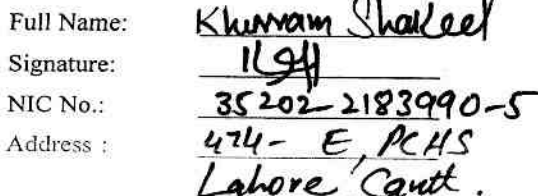 Full Name: Khurram Shakeel
Signature:
NIC No.: 35202-2183990-5
Address : 474- E, PCHS
Lahore Cantt.